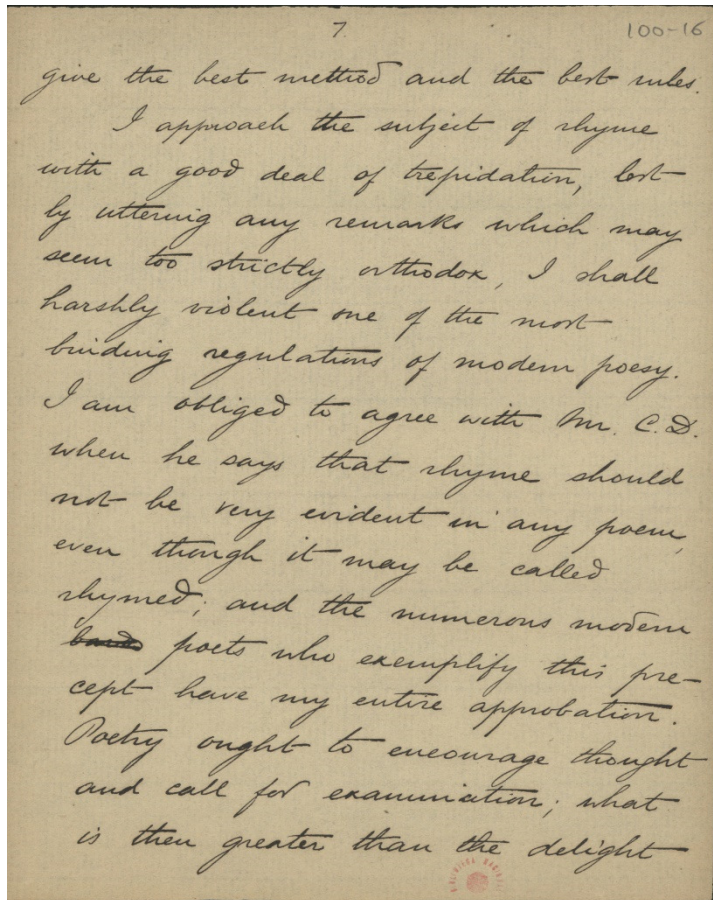 7
100-16
give the best method and the best rules.
I approach the subject of rhyme
with a good deal of trepidation, lest
by uttering any remarks which may
seem too strictly orthodox, I shall
harshly violent one of the most
binding regulations of modern poesy.
I am obliged to agree with Mr. C.D.
when he says that rhyme should
not be very evident in any poem,
even though it may be called
rhymed; and the numerous modern
poets who exemplify this pre-
cept have my entire approbation.
Poetry ought to encourage thought
and call for examination; what
is then greater than the delight